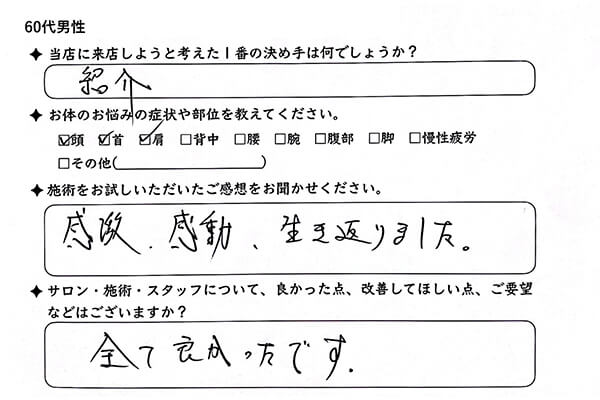 60代男性
✦ 当店に来店しようと考えた1番の決め手は何でしょうか？
紹介
✦ お体のお悩みの症状や部位を教えてください。
☑頭 ☑首 ☑肩 □背中 □腰 □腕 □腹部 □脚 □慢性疲労
□その他( )
✦ 施術をお試しいただいたご感想をお聞かせください。
感激、感動、生き返りました。
✦ サロン・施術・スタッフについて、良かった点、改善してほしい点、ご要望
などはございますか？
全て良かったです。